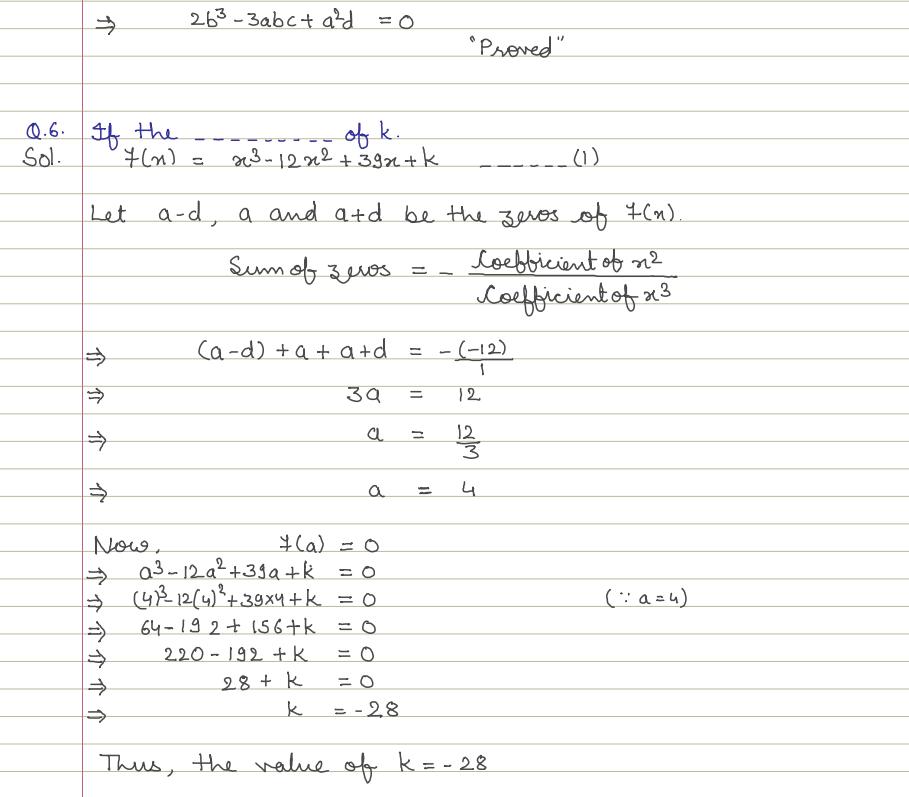 ⇒ 2b³ - 3abc + a²d = 0
"Proved"
Q.6. If the --------- of k.
Sol. f(x) = x³ - 12x² + 39x + k ------(1)
Let a-d, a and a+d be the zeros of f(x).
Sum of zeros = - Coefficient of x² / Coefficient of x³
⇒ (a-d) + a + a+d = -(-12)/1
⇒ 3a = 12
⇒ a = 12/3
⇒ a = 4
Now, f(a) = 0
⇒ a³ - 12a² + 39a + k = 0
⇒ (4)³ - 12(4)² + 39×4 + k = 0 (∵ a = 4)
⇒ 64 - 192 + 156 + k = 0
⇒ 220 - 192 + k = 0
⇒ 28 + k = 0
⇒ k = -28
Thus, the value of k = -28